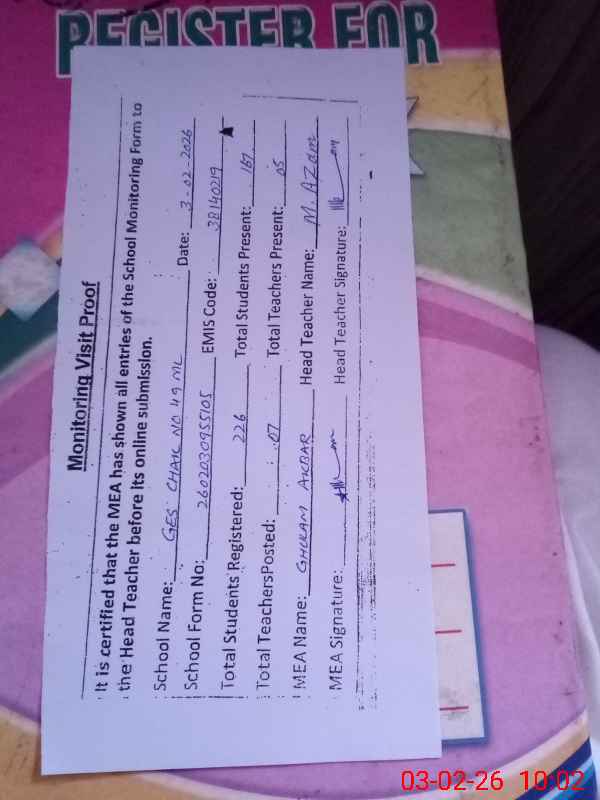 REGISTER FOR
Monitoring Visit Proof
It is certified that the MEA has shown all entries of the School Monitoring Form to
the Head Teacher before its online submission.
School Name: GES CHAK NO 49 ML Date: 3-02-2026
School Form No: 2602030955105 EMIS Code: 38140219
Total Students Registered: 226 Total Students Present: 167
Total TeachersPosted: 07 Total Teachers Present: 05
MEA Name: GHULAM AKBAR Head Teacher Name: M. AZam
MEA Signature: Head Teacher Signature:
03-02-26 10:02